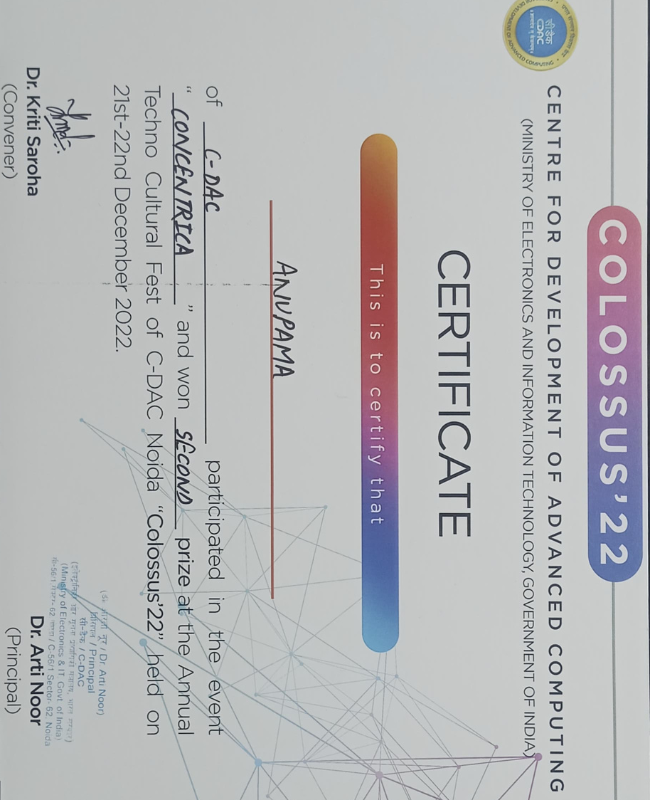 COLOSSUS'22
सी डैक
CDAC
CENTRE FOR DEVELOPMENT OF ADVANCED COMPUTING
(MINISTRY OF ELECTRONICS AND INFORMATION TECHNOLOGY, GOVERNMENT OF INDIA)
CERTIFICATE
This is to certify that
ANUPAMA
of C-DAC participated in the event
“ CONCENTRICA ” and won SECOND prize at the Annual
Techno Cultural Fest of C-DAC Noida “Colossus'22” held on
21st-22nd December 2022.
/ Dr. Arti Noor)
/ Principal
सी-डैक / C-DAC
(Ministry of Electronics & IT Govt. of India)
/ C-56/1 Sector- 62 Noida
Dr. Kriti Saroha
(Convener)
Dr. Arti Noor
(Principal)